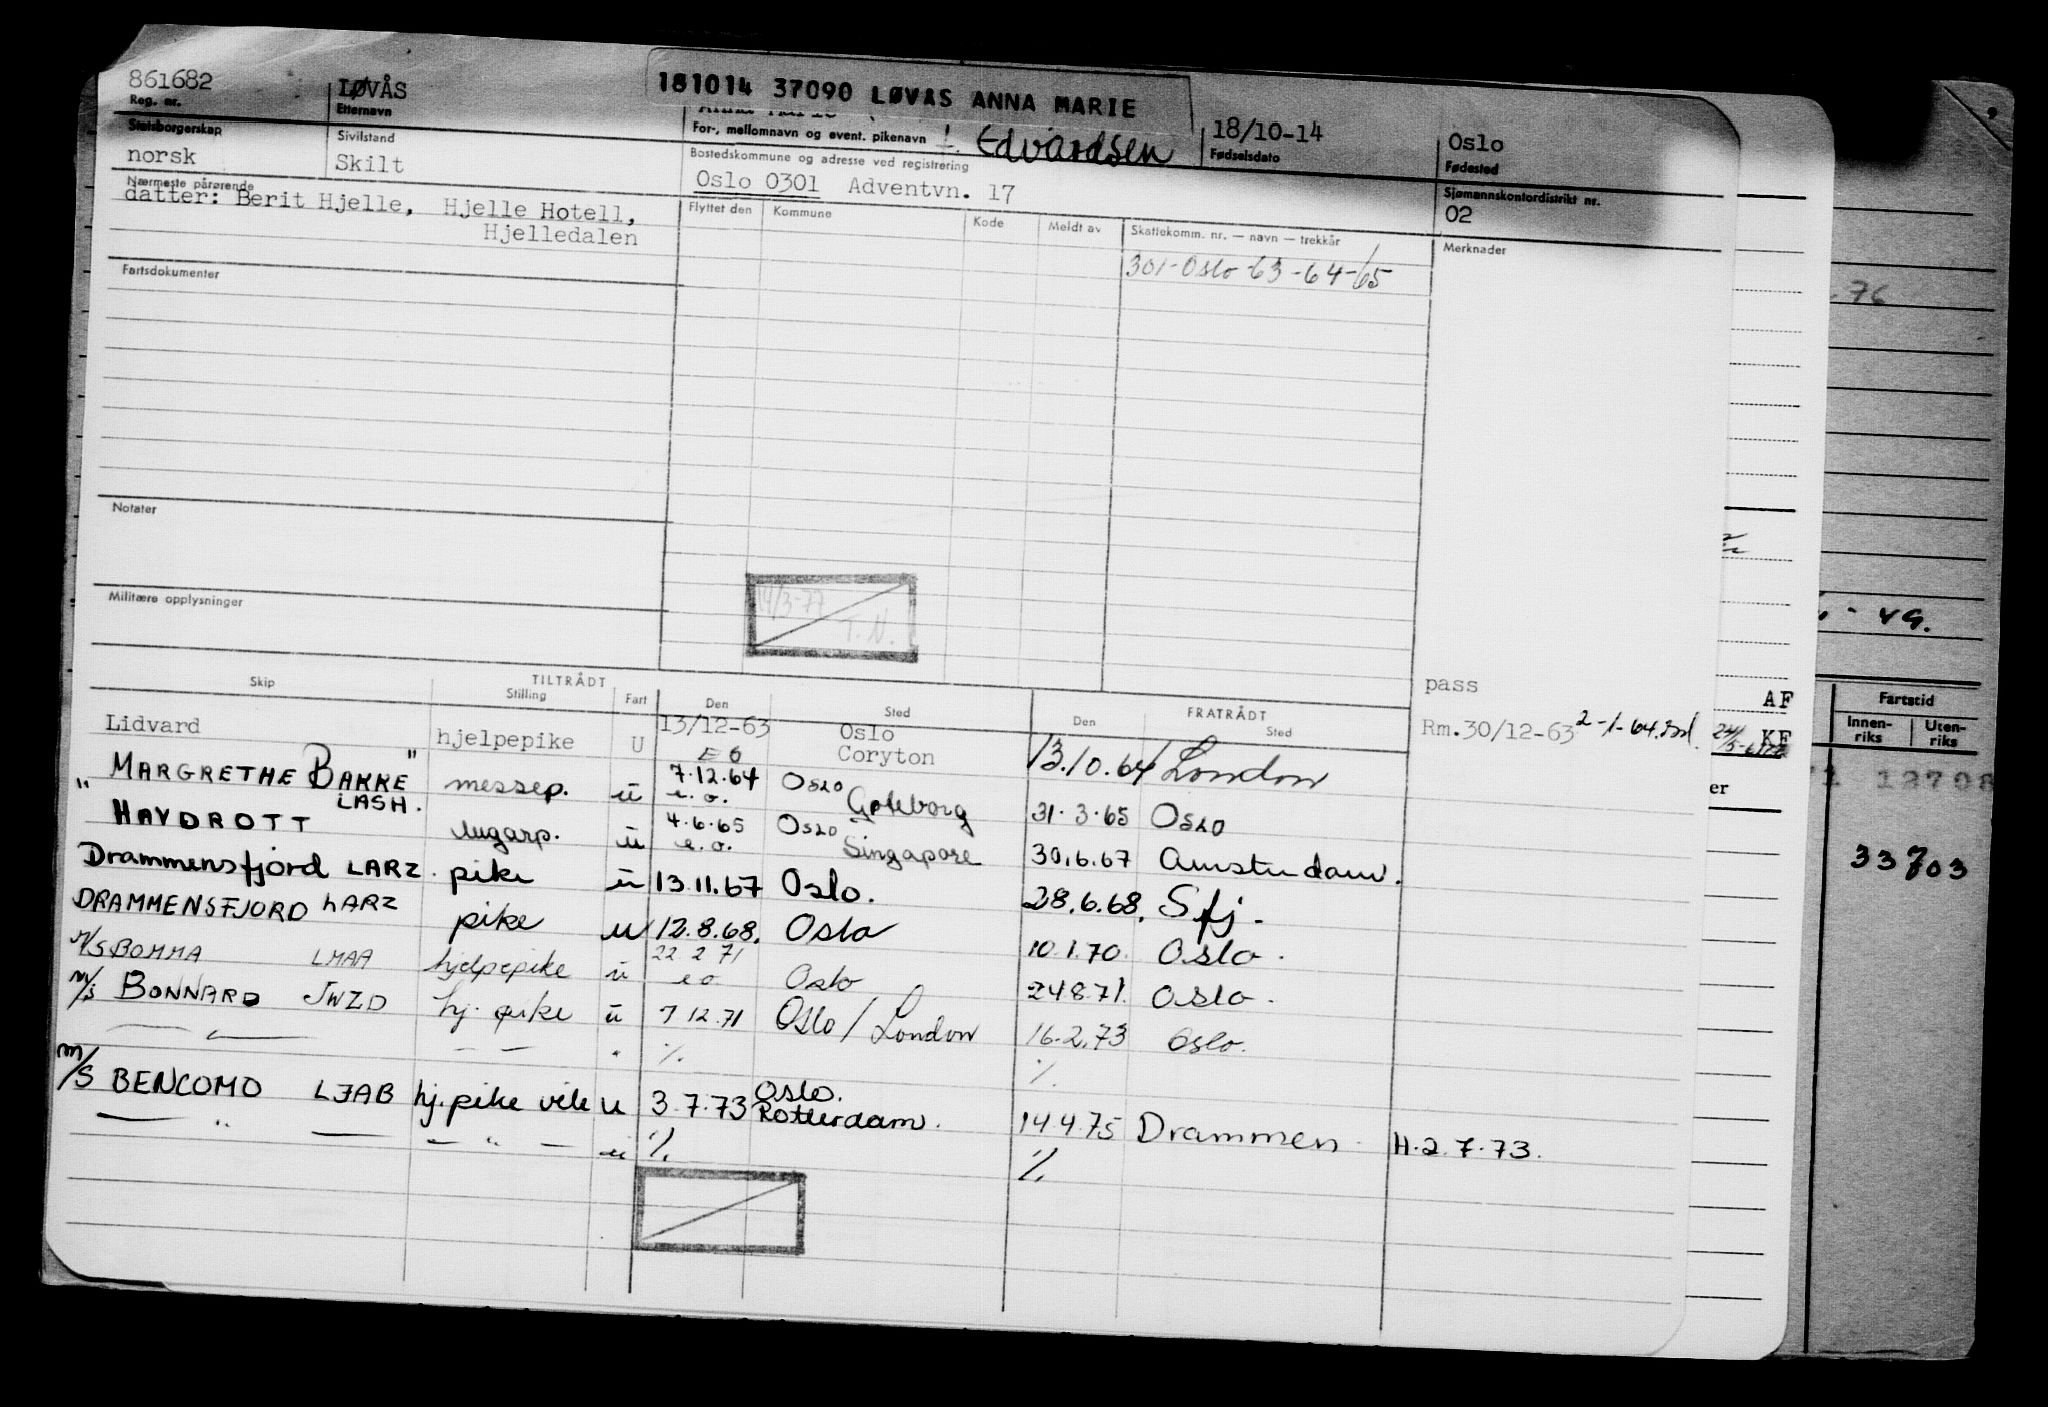 861682 LØVÅS 181014 37090 LØVAS ANNA MARIE 18/10-14 Oslo
Reg. nr. Etternavn For-, mellomnavn og event. pikenavn f. Edvardsen Fødselsdato Fødested
Statsborgerskap Sivilstand Bostedskommune og adresse ved registrering Sjømannskontordistrikt nr.
norsk Skilt Oslo 0301 Adventvn. 17 02
Nærmeste pårørende Flyttet den Kommune Kode Meldt av Skattekomm. nr. — navn — trekkår Merknader
datter: Berit Hjelle, Hjelle Hotell,
Hjelledalen
301-Oslo-63-64-65
Fartsdokumenter
76
Notater
Militære opplysninger
14/3-77
T.N.
- 49.
TILTRÅDT FRATRÅDT
Skip Stilling Fart Den Sted Den Sted
pass
AF
Fartstid
Innen-riks Uten-riks
Lidvard hjelpepike U 13/12-63 Oslo
EO Coryton 13.10.64 London Rm.30/12-63 2-1-64. KF
"MARGRETHE BAKKE" LASH. messep. ü 7.12.64 e.o. Oslo Göteborg 31.3.65 Oslo
" HAVDROTT lugarp. ü 4.6.65 e.o. Oslo Singapore 30.6.67 Amsterdam.
Drammensfjord LARZ. pike ü 13.11.67 Oslo. 28.6.68. Sfj.
DRAMMENSFJORD LARZ pike u 12.8.68. Oslo 10.1.70. Oslo.
M/S BOMMA LMAA hjelpepike ü 22 2 71 eo Oslo 24.8.71. Oslo.
M/S BONNARD JWZD hj. pike ü 7.12.71 Oslo / London 16.2.73 Oslo.
— " — — — " ./. ./.
M/S BENCOMO LJAB hj.pike vik u 3.7.73 Oslo. Rotterdam. 14.4.75 Drammen H.2.7.73.
— " — — " — u ./. ./.
er
12708
33703